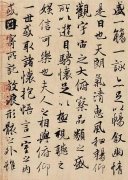 盛一觴一詠亦足以暢敘幽情
是日也天朗氣清惠風和暢仰
觀宇宙之大俯察品類之盛
所以遊目騁懷足以極視聽之
娛信可樂也夫人之相與俯仰
一世或取諸懷抱悟言一室之內
或因寄所託放浪形骸之外雖